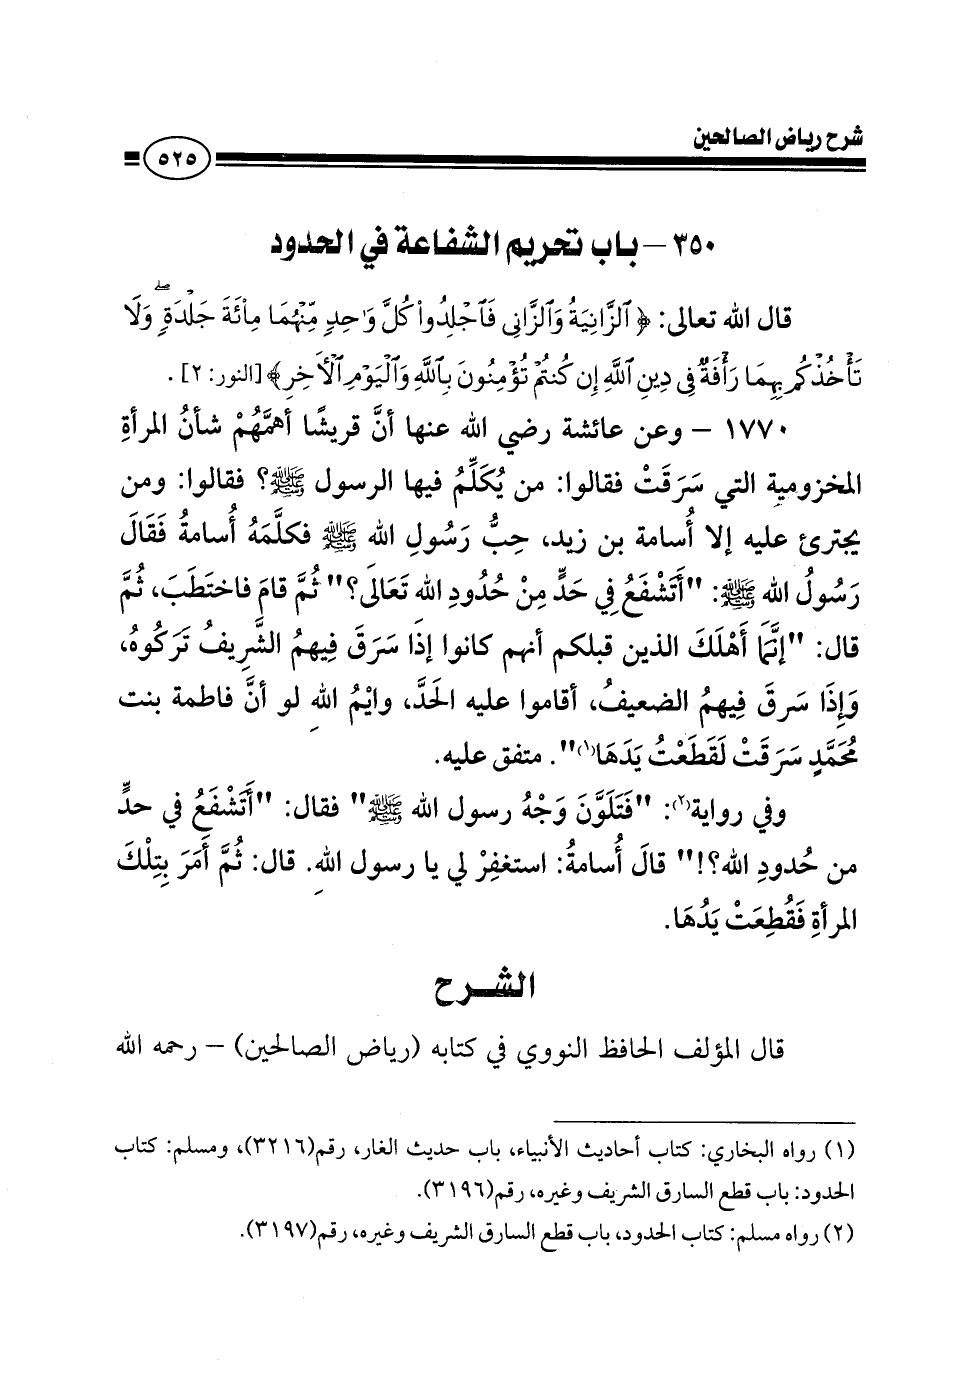 شرح رياض الصالحين
٥٢٥
٣٥٠ – باب تحريم الشفاعة في الحدود
قال الله تعالى: ﴿ ٱلزَّانِيَةُ وَٱلزَّانِي فَٱجْلِدُوا۟ كُلَّ وَٰحِدٍ مِّنْهُمَا مِا۟ئَةَ جَلْدَةٍ ۖ وَلَا
تَأْخُذْكُم بِهِمَا رَأْفَةٌ فِي دِينِ ٱللَّهِ إِن كُنتُمْ تُؤْمِنُونَ بِٱللَّهِ وَٱلْيَوْمِ ٱلْأَخِرِ﴾ [النور: ٢] .
١٧٧٠ – وعن عائشة رضي الله عنها أنَّ قريشًا أهمَّهُمْ شأنُ المرأةِ
المخزومية التي سَرَقَتْ فقالوا: من يُكَلِّمُ فيها الرسول ﷺ؟ فقالوا: ومن
يجترئ عليه إلا أُسامة بن زيد، حِبُّ رَسُولِ الله ﷺ فكلَّمَهُ أُسامةُ فَقَالَ
رَسُولُ الله ﷺ: "أَتَشْفَعُ فِي حَدٍّ مِنْ حُدُودِ الله تَعَالَى؟" ثُمَّ قامَ فاختَطَبَ، ثُمَّ
قال: "إنَّمَا أَهْلَكَ الذين قبلكم أنهم كانوا إذَا سَرَقَ فِيهِمُ الشَّرِيفُ تَرَكُوهُ،
وَإِذَا سَرَقَ فِيهِمُ الضعيفُ، أقاموا عليه الحَدَّ، وايْمُ اللهِ لو أنَّ فاطمة بنت
مُحَمَّدٍ سَرَقَتْ لَقَطَعْتُ يَدَهَا(١)". متفق عليه.
وفي رواية(٢): "فَتَلَوَّنَ وَجْهُ رسول الله ﷺ" فقال: "أَتَشْفَعُ في حدٍّ
من حُدودِ الله؟!" قالَ أُسامةُ: استغفِرْ لي يا رسول اللهِ. قال: ثُمَّ أَمَرَ بِتِلْكَ
المرأةِ فَقُطِعَتْ يَدُهَا.
الشرح
قال المؤلف الحافظ النووي في كتابه (رياض الصالحين) – رحمه الله
(١) رواه البخاري: كتاب أحاديث الأنبياء، باب حديث الغار، رقم(٣٢١٦)، ومسلم: كتاب
الحدود: باب قطع السارق الشريف وغيره، رقم(٣١٩٦).
(٢) رواه مسلم: كتاب الحدود، باب قطع السارق الشريف وغيره، رقم(٣١٩٧).